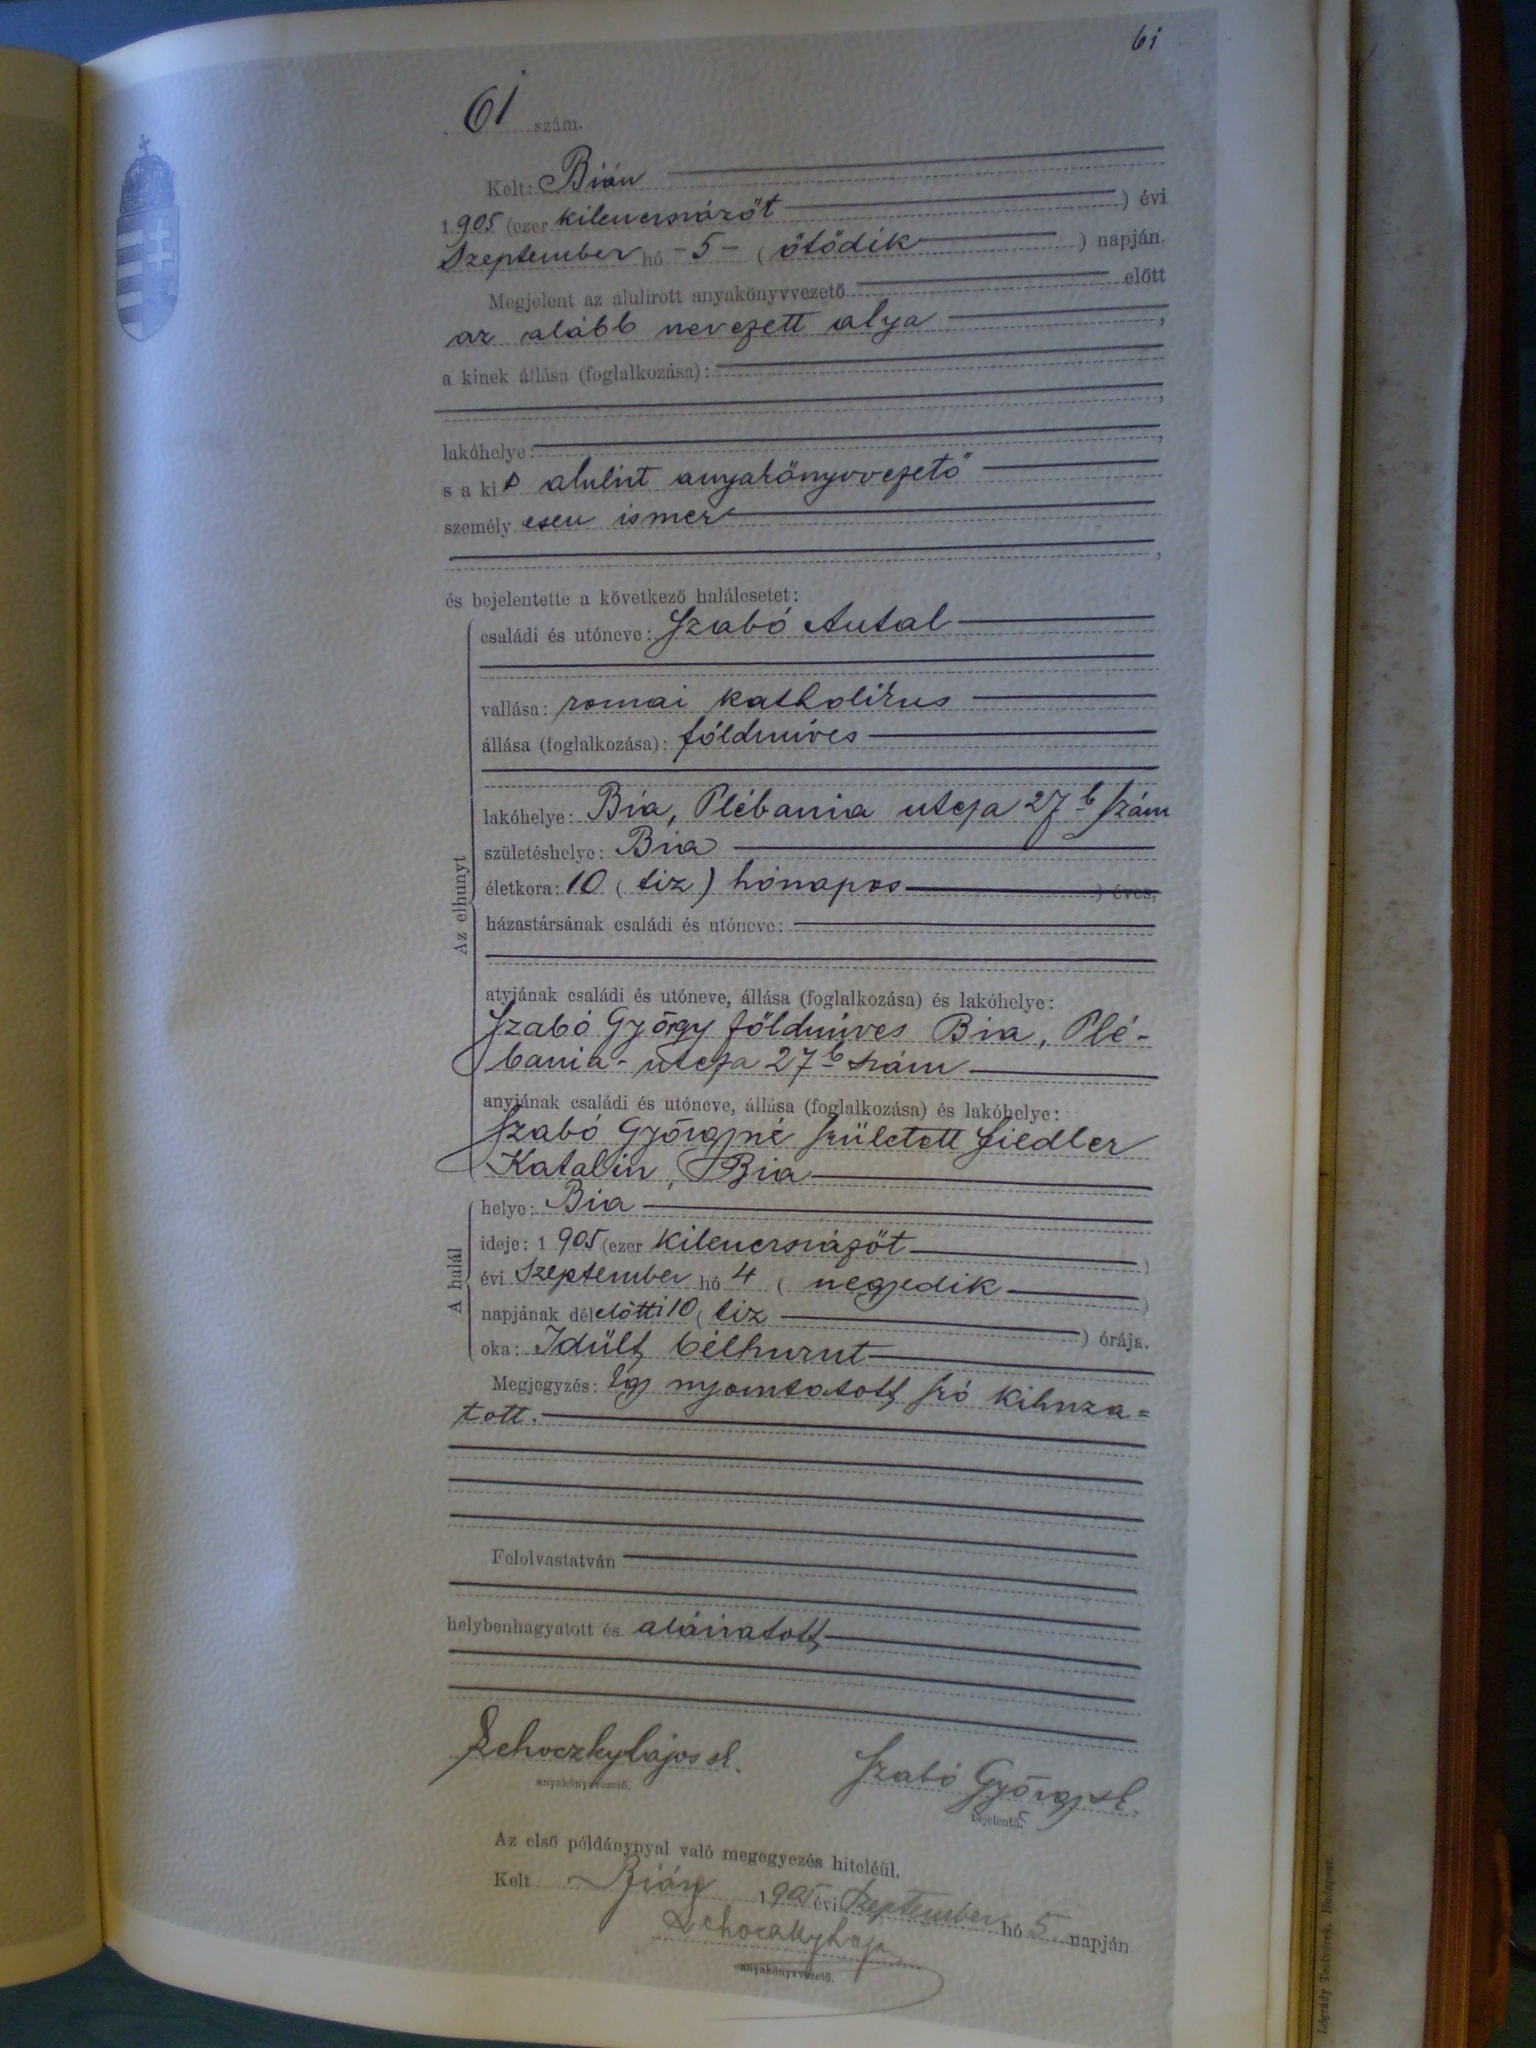 61
61 szám.
Kelt: Bián
1905 (ezer kilencszázöt) évi
Szeptember hó -5- (ötödik) napján.
Megjelent az alulirott anyakönyvvezető előtt
az alább nevezett atya,
a kinek állása (foglalkozása):
lakóhelye:
s a kit alulirt anyakönyvvezető
személyesen ismer
és bejelentette a következő halálesetet:
Az elhunyt
családi és utóneve: Szabó Antal
vallása: romai katholikus
állása (foglalkozása): földmíves
lakóhelye: Bia, Plébania utcza 27 b szám
születéshelye: Bia
életkora: 10 (tiz) hónapos ) éves,
házastársának családi és utóneve:
atyjának családi és utóneve, állása (foglalkozása) és lakóhelye:
Szabó György földmíves Bia, Plé-
bania-utcza 27 b szám
anyjának családi és utóneve, állása (foglalkozása) és lakóhelye:
Szabó Györgyné született Fiedler
Katalin, Bia
A halál
helye: Bia
ideje: 1905 (ezer kilencszázöt)
évi Szeptember hó 4 (negyedik)
napjának délelőtti 10 (tiz) órája.
oka: Idült bélhurut
Megjegyzés: Egy nyomtatott szó kihuza=
tott.
Felolvastatván
helybenhagyatott és aláiratott
Lehoczky Lajos sk.
anyakönyvvezető.
Szabó György sk.
bejelentő.
Az első példánynyal való megegyezés hiteléül.
Kelt Bián 1905 évi Szeptember hó 5 napján
Lehoczky Lajos
anyakönyvvezető.
Légrády Testvérek, Budapest.